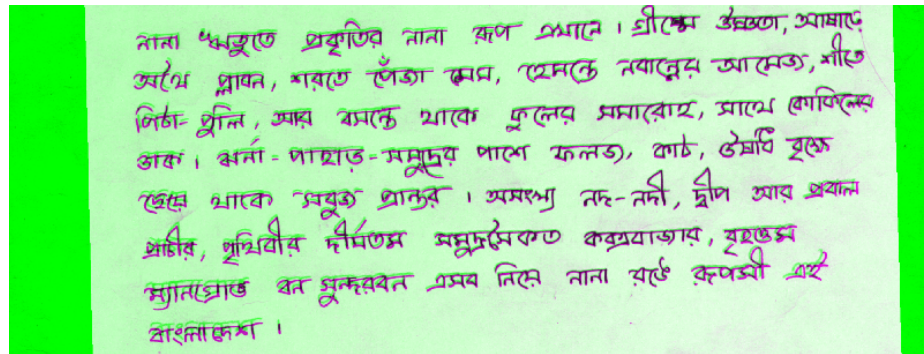 নানা ঋতুতে প্রকৃতির নানা রূপ এখানে। গ্রীষ্মের উষ্ণতা, আষাঢ়ে
অথৈ প্লাবন, শরতে পেঁজা মেঘ, হেমন্তে নবান্নের আমেজ, শীতে
পিঠা-পুলি, আর বসন্তে থাকে ফুলের সমারোহ, সাথে কোকিলের
ডাক। ঝর্না-পাহাড়-সমুদ্রের পাশে ফলজ, কাঠ, ঔষধি বৃক্ষে
ছেয়ে থাকে সবুজ প্রান্তর। অসংখ্য নদ-নদী, দ্বীপ আর প্রবাল
প্রাচীর, পৃথিবীর দীর্ঘতম সমুদ্রসৈকত কক্সবাজার, বৃহত্তম
ম্যানগ্রোভ বন সুন্দরবন এসব নিয়ে নানা রঙে রূপসী এই
বাংলাদেশ।